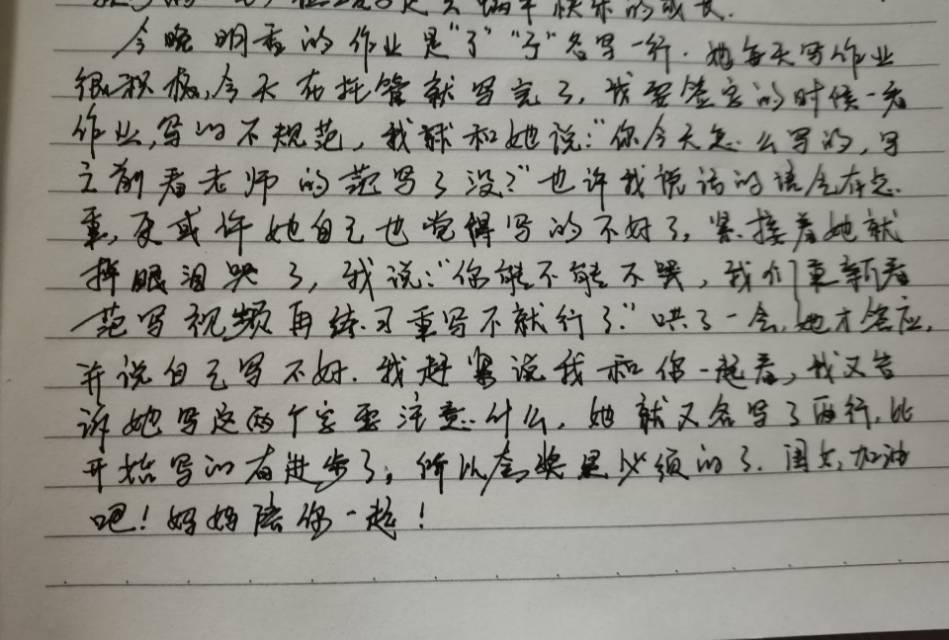 快乐的成长.
今晚明香的作业是"了""子"各写一行.她每天写作业
很积极,今天在托管就写完了,我要签字的时候一看
作业,写的不规范,我就和她说:"你今天怎么写的,写
之前看老师的范写了没?"也许我说话的语气有点
重,更或许她自己也觉得写的不好了,紧接着她就
掉眼泪哭了,我说:"你能不能不哭,我们重新看
范写视频再练习重写不就行了."哄了一会,她才答应,
并说自己写不好.我赶紧说我和你一起看,我又告
诉她写这两个字要注意什么,她就又各写了两行,比
开始写的有进步了,所以夸奖是必须的了.闺女,加油
吧!妈妈陪你一起!